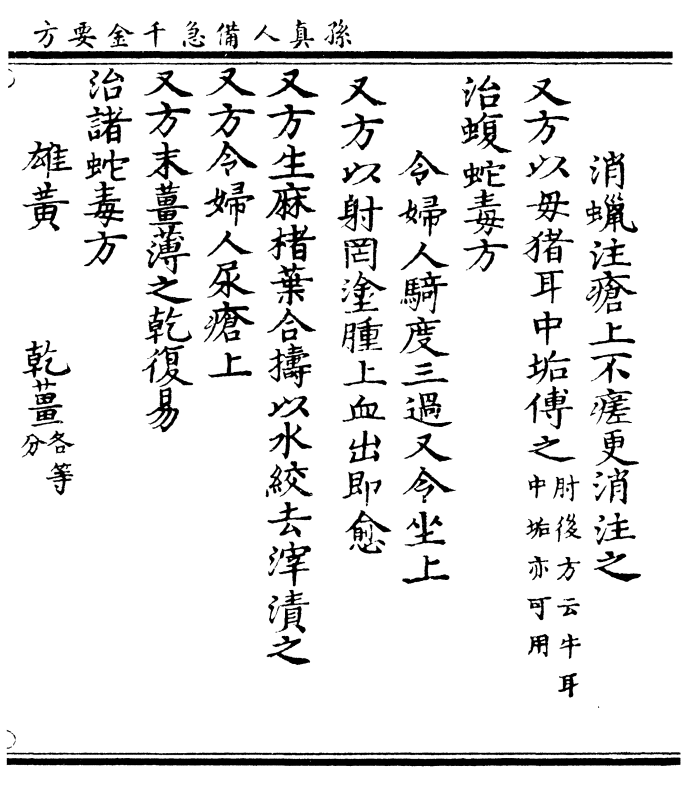 孫真人備急千金要方
消蠟注瘡上不瘥更消注之
又方以毋猪耳中垢傅之肘後方云牛耳中垢亦可用
治蝮蛇毒方
令婦人騎度三過又令坐上
又方以射罔塗腫上血出即愈
又方生麻楮葉合擣以水絞去滓漬之
又方令婦人尿瘡上
又方末薑薄之乾復易
治諸蛇毒方
雄黃　乾薑各等分